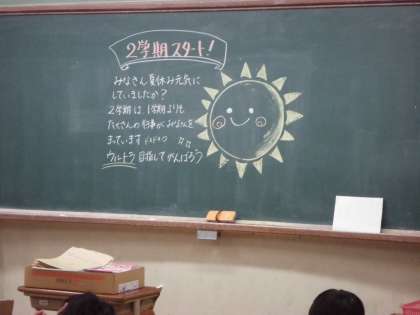 2学期スタート!
みなさん夏休み元気に
していましたか?
2学期は1学期よりも
たくさんの行事がみなさんを
まっています ドキドキ
ウルトラ目指してがんばろう